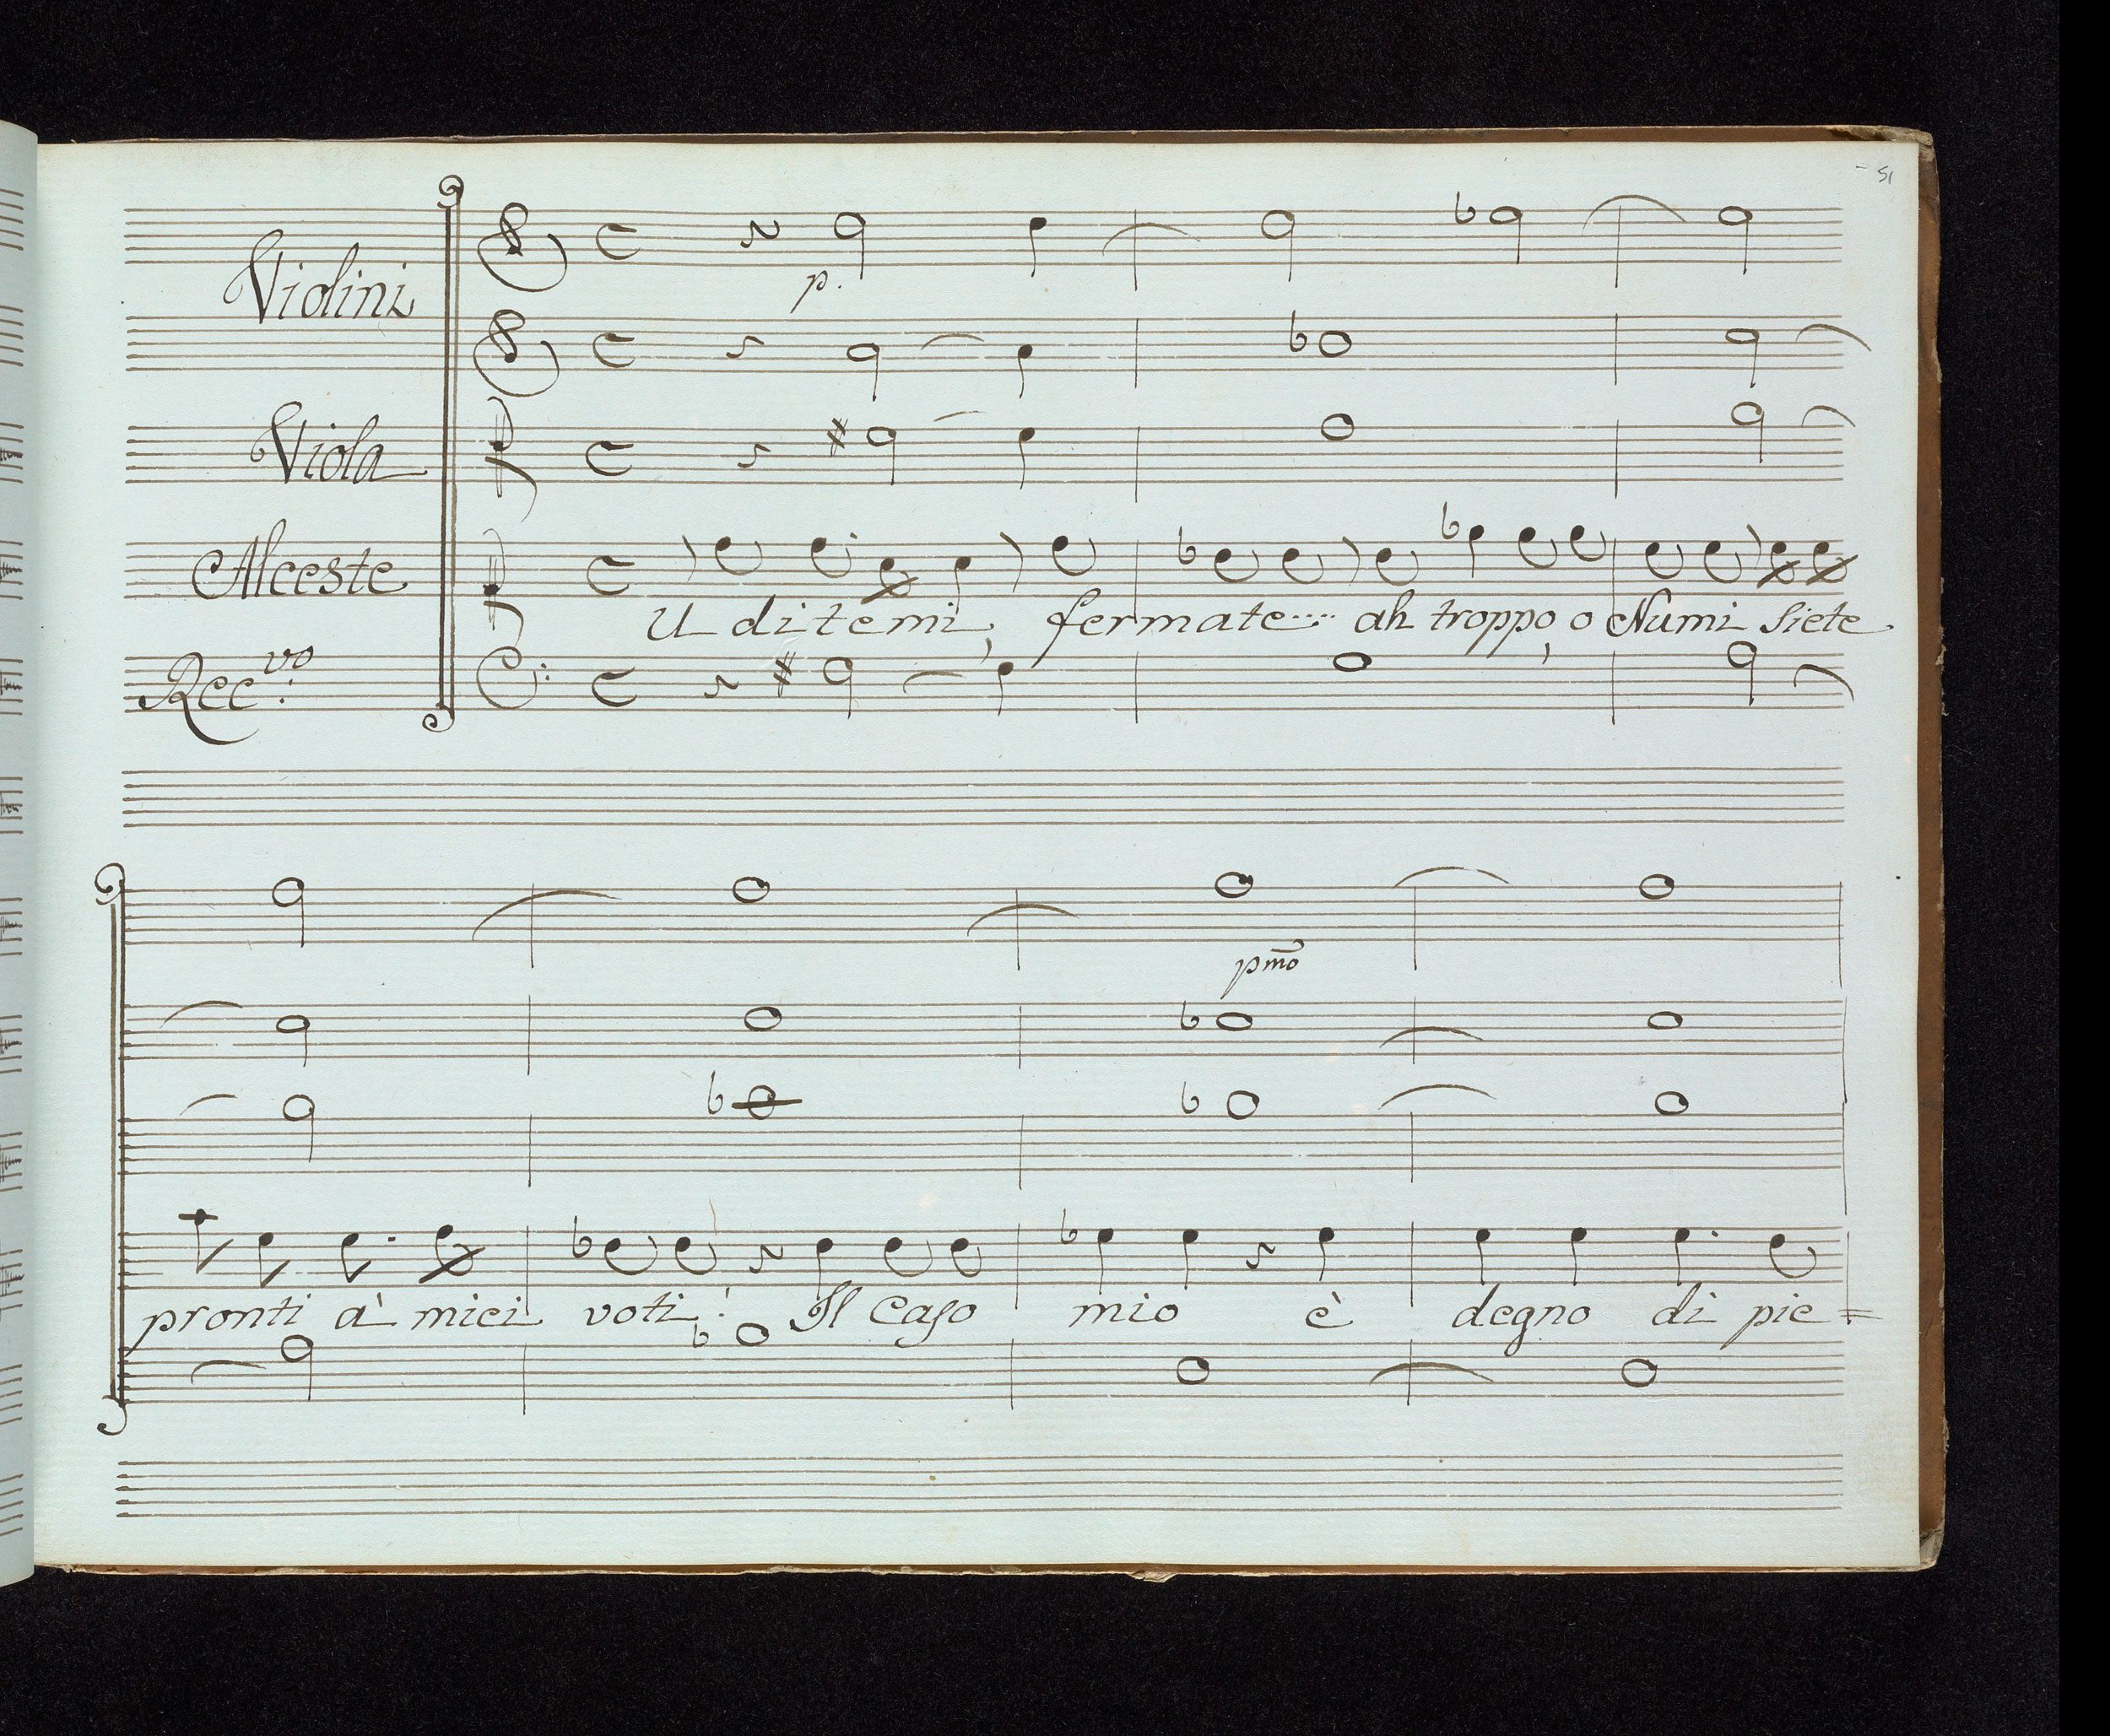 51
Violini
p.
Viola
Alceste
U ditemi, fermate.... ah troppo, o Numi siete
Rec.vo
pmo
pronti a' miei voti! Il caso mio è degno di pie=